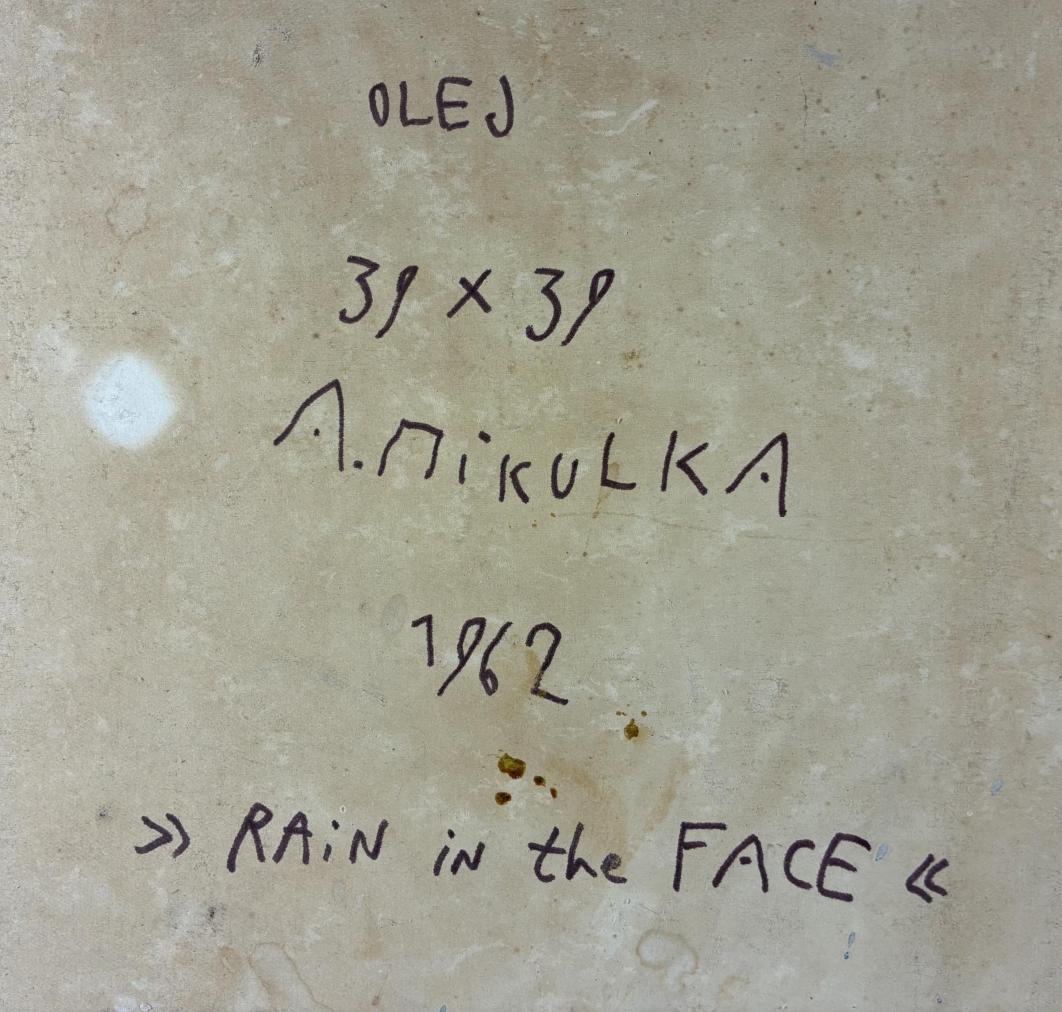 OLEJ
39 x 39
A. MiKULKA
1962
» RAiN iN the FACE «